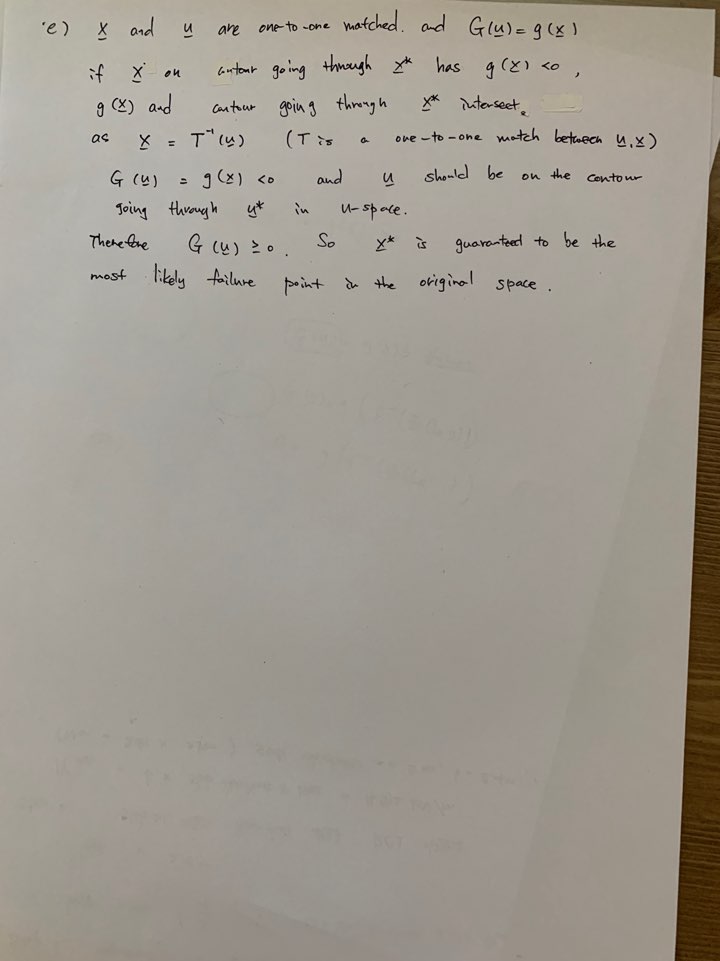 e) x and u are one-to-one matched. and G(u) = g(x)
if x on contour going through x* has g(x) <0,
g(x) and contour going through x* intersect.
as x = T⁻¹(u) (T is a one-to-one match between u, x)
G(u) = g(x) <0 and u should be on the contour
going through u* in u-space.
Therefore G(u) ≥ 0. So x* is guaranteed to be the
most likely failure point in the original space.